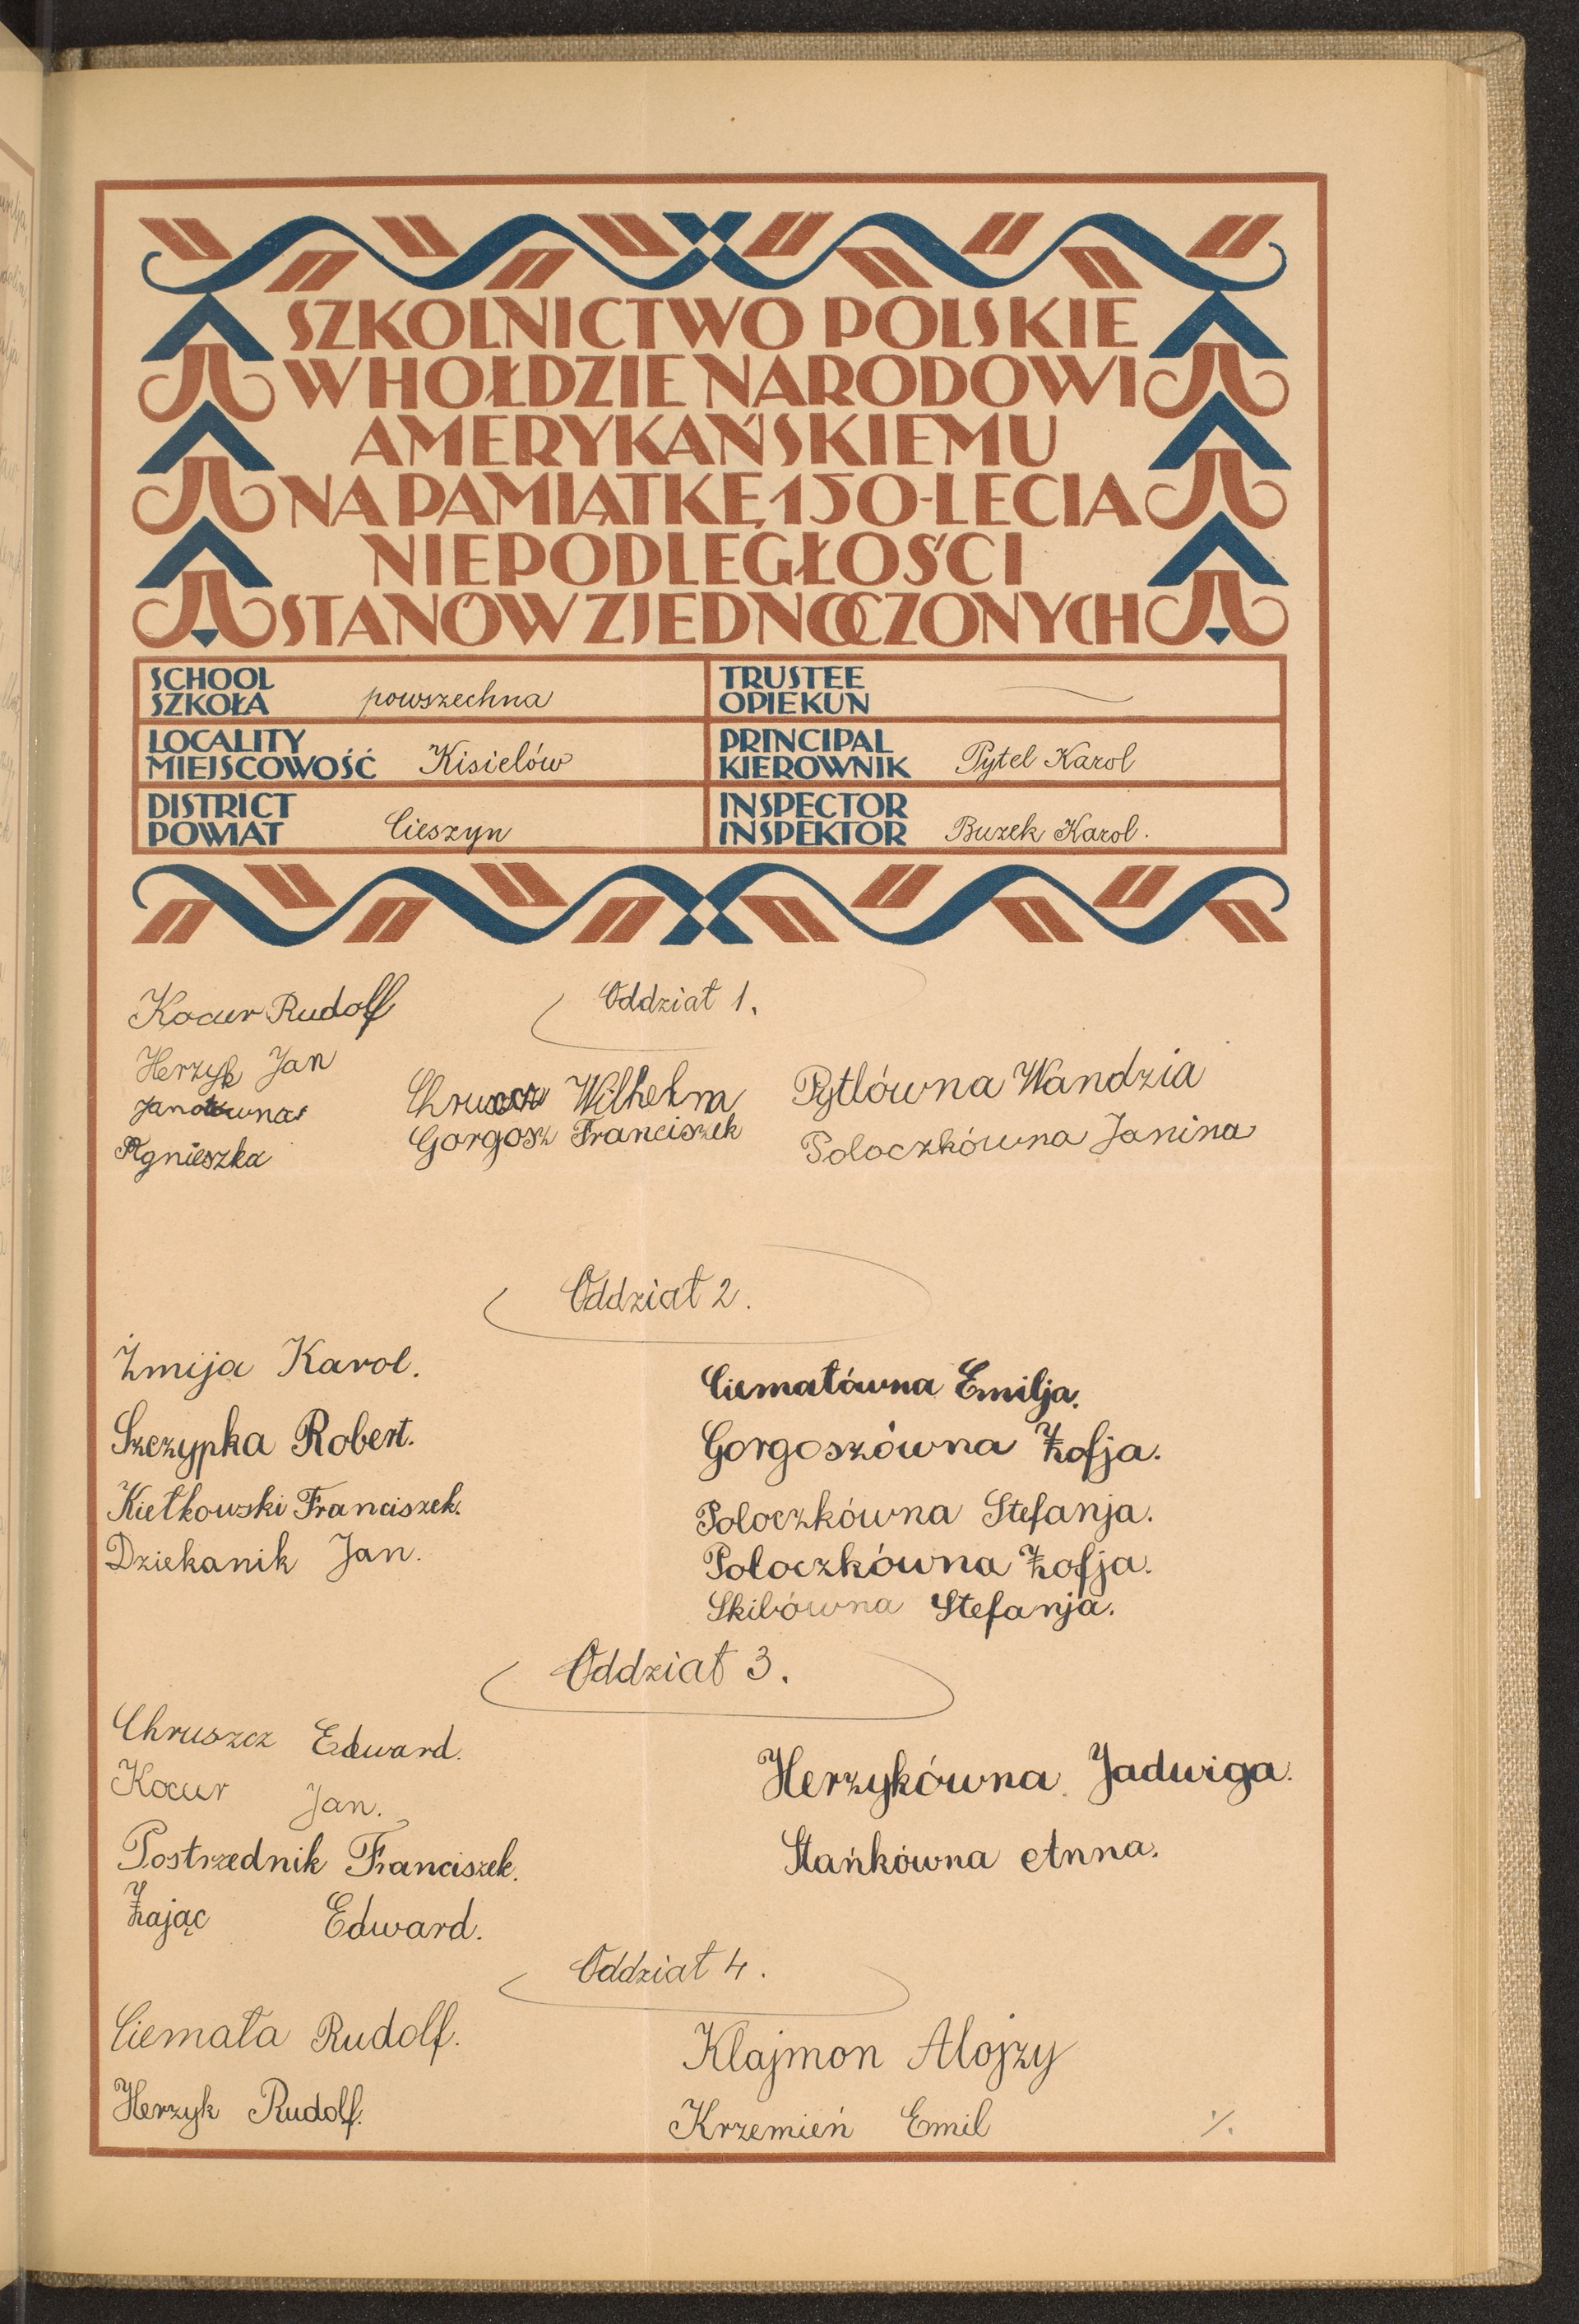 SZKOLNICTWO POLSKIE
W HOŁDZIE NARODOWI
AMERYKAŃSKIEMU
NA PAMIĄTKĘ 150-LECIA
NIEPODLEGŁOŚCI
STANÓW ZJEDNOCZONYCH
SCHOOL
SZKOŁA powszechna
TRUSTEE
OPIEKUN
LOCALITY
MIEJSCOWOŚĆ Kisielów
PRINCIPAL
KIEROWNIK Pytel Karol
DISTRICT
POWIAT Cieszyn
INSPECTOR
INSPEKTOR Buzek Karol.
Oddział 1.
Kocur Rudolf
Herzyk Jan
Janotówna
Agnieszka
Chruszcz Wilhelm
Gorgosz Franciszek
Pytlówna Wandzia
Poloczkówna Janina
Oddział 2.
Żmija Karol.
Szczypka Robert.
Kiełkowski Franciszek.
Dziekanik Jan.
Ciemałówna Emilja.
Gorgoszówna Zofja.
Poloczkówna Stefanja.
Poloczkówna Zofja.
Skibówna Stefanja.
Oddział 3.
Chruszcz Edward.
Kocur Jan.
Postrzednik Franciszek.
Zając Edward.
Herzykówna Jadwiga.
Stańkówna Anna.
Oddział 4.
Ciemała Rudolf.
Herzyk Rudolf.
Klajmon Alojzy
Krzemień Emil
./.